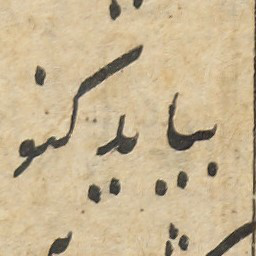 بیاید کنو